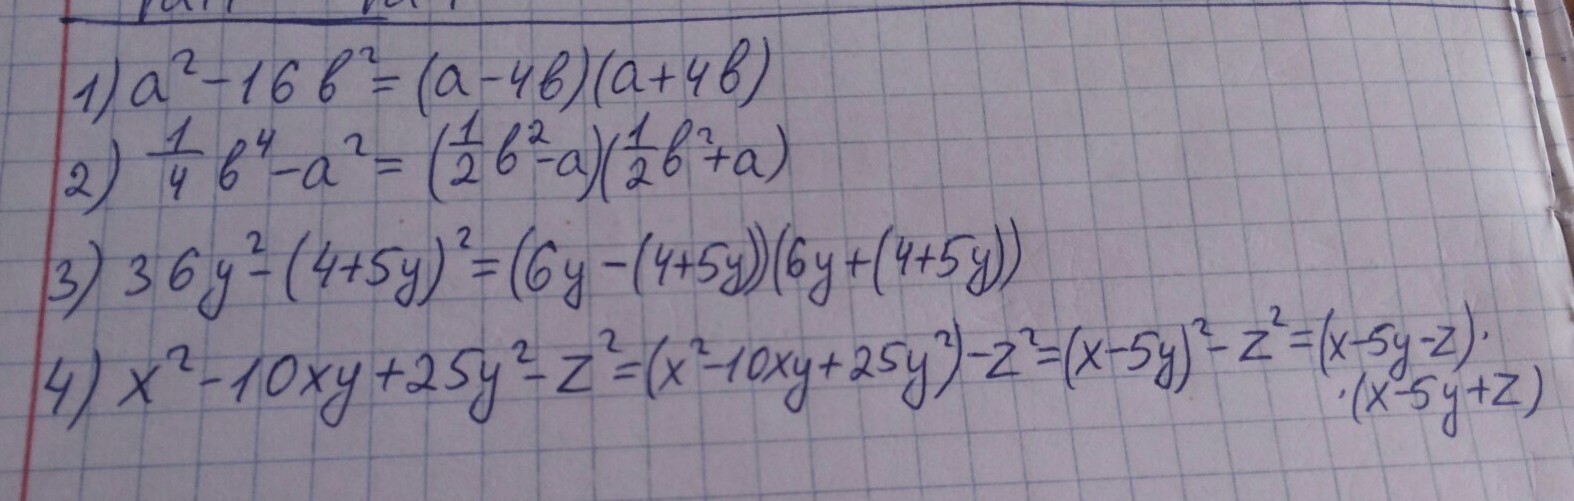 1) a² - 16b² = (a - 4b)(a + 4b)
2) 1/4 b⁴ - a² = (1/2 b² - a)(1/2 b² + a)
3) 36y² - (4+5y)² = (6y - (4+5y))(6y + (4+5y))
4) x² - 10xy + 25y² - z² = (x² - 10xy + 25y²) - z² = (x - 5y)² - z² = (x - 5y - z) ·
· (x - 5y + z)